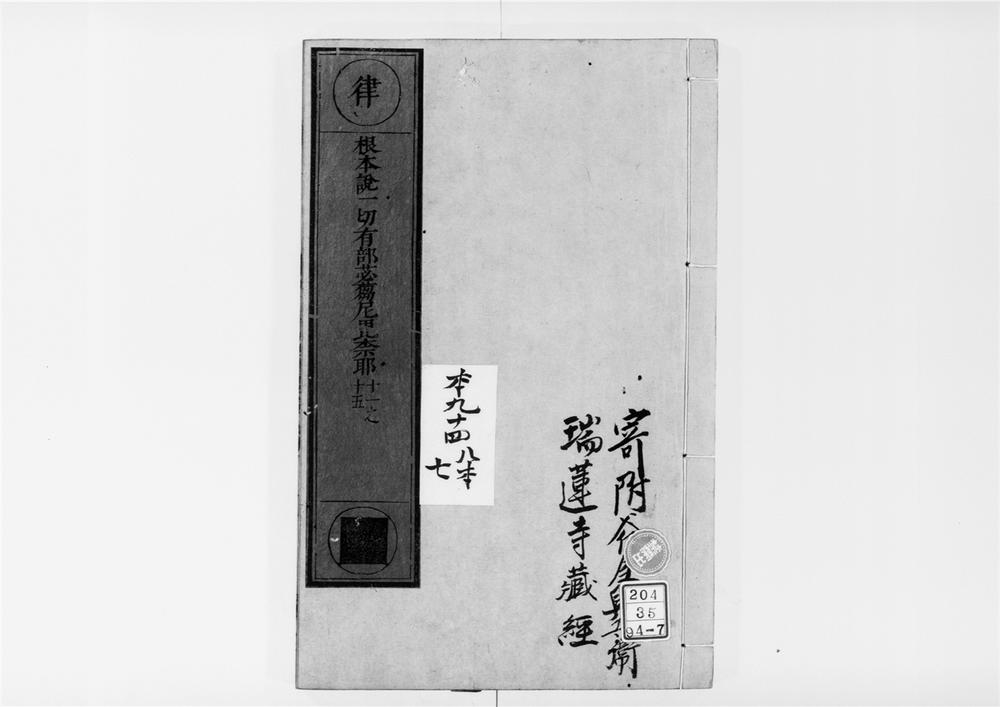 律
根本說一切有部苾蒭尼毘奈耶
十一之
十五
本九十四
八本
七
寄附
衛
瑞蓮寺藏經
204
35
94-7